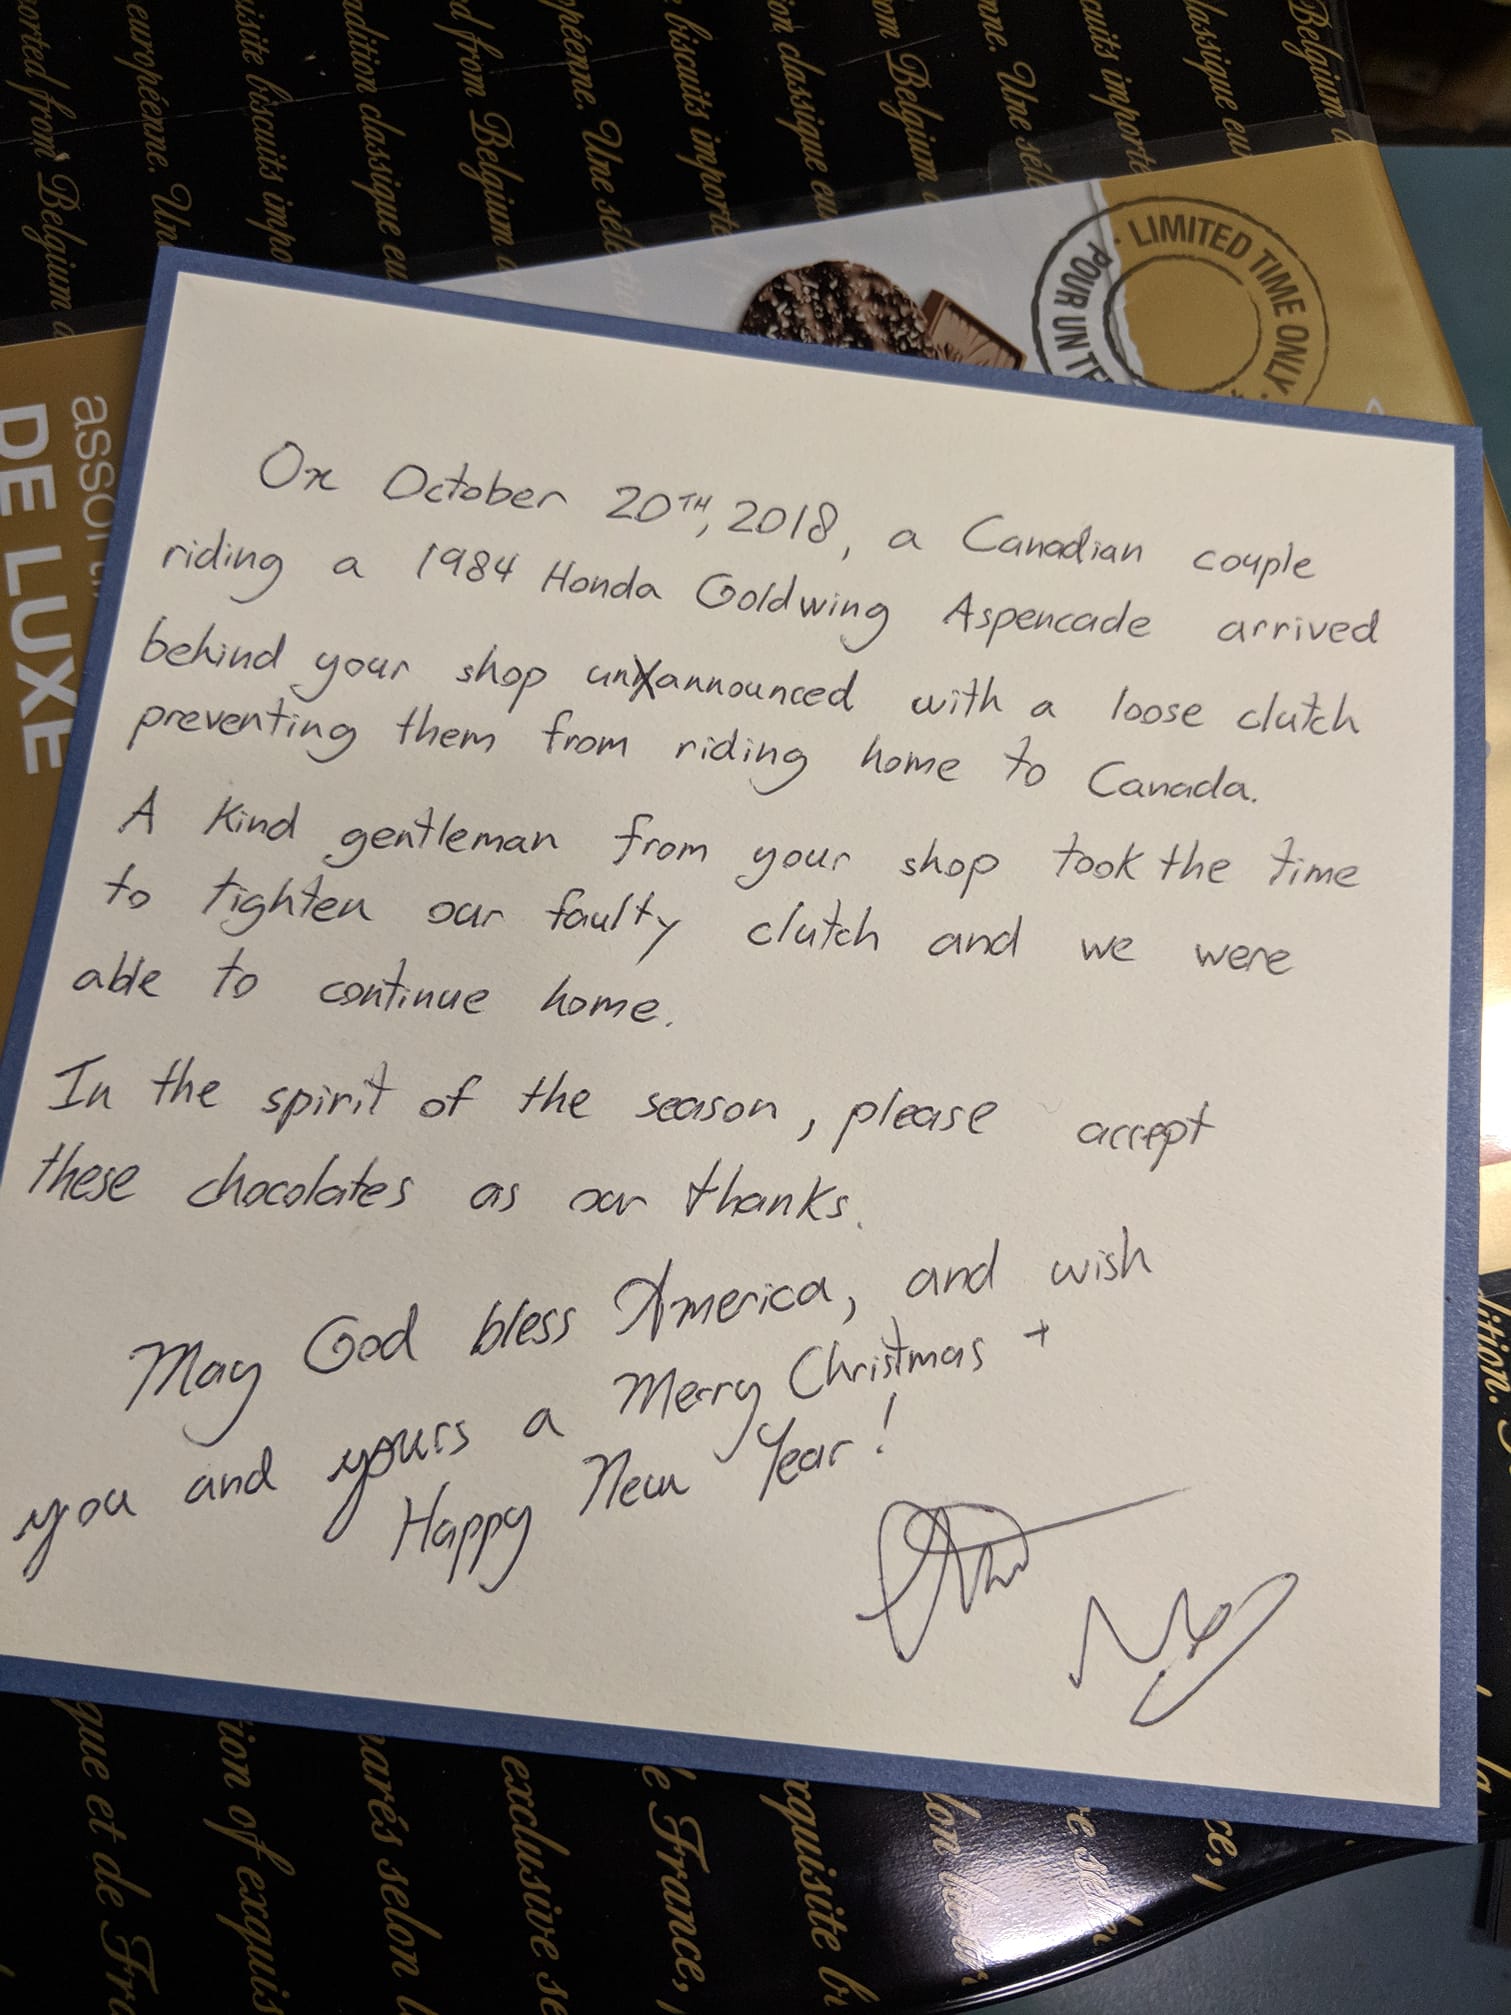 On October 20TH, 2018, a Canadian couple
riding a 1984 Honda Goldwing Aspencade arrived
behind your shop unannounced with a loose clutch
preventing them from riding home to Canada.
A kind gentleman from your shop took the time
to tighten our faulty clutch and we were
able to continue home.
In the spirit of the season, please accept
these chocolates as our thanks.
May God bless America, and wish
you and yours a Merry Christmas +
Happy New Year!
LIMITED TIME ONLY
POUR UN
DE LUXE
orted from Belgium
européenne. Un
isite biscuits impo
adition classique eu
d from Belgium
péenne. Une sélection
biscuits importé
ion classique eu
om Belgium
nne. Une sél
cuits importé
lassique eu
Belgium
dition.
que et de Fra
tion of exquis
parés selon l
exclusive se
de France,
xquisite bi
lon
ce,